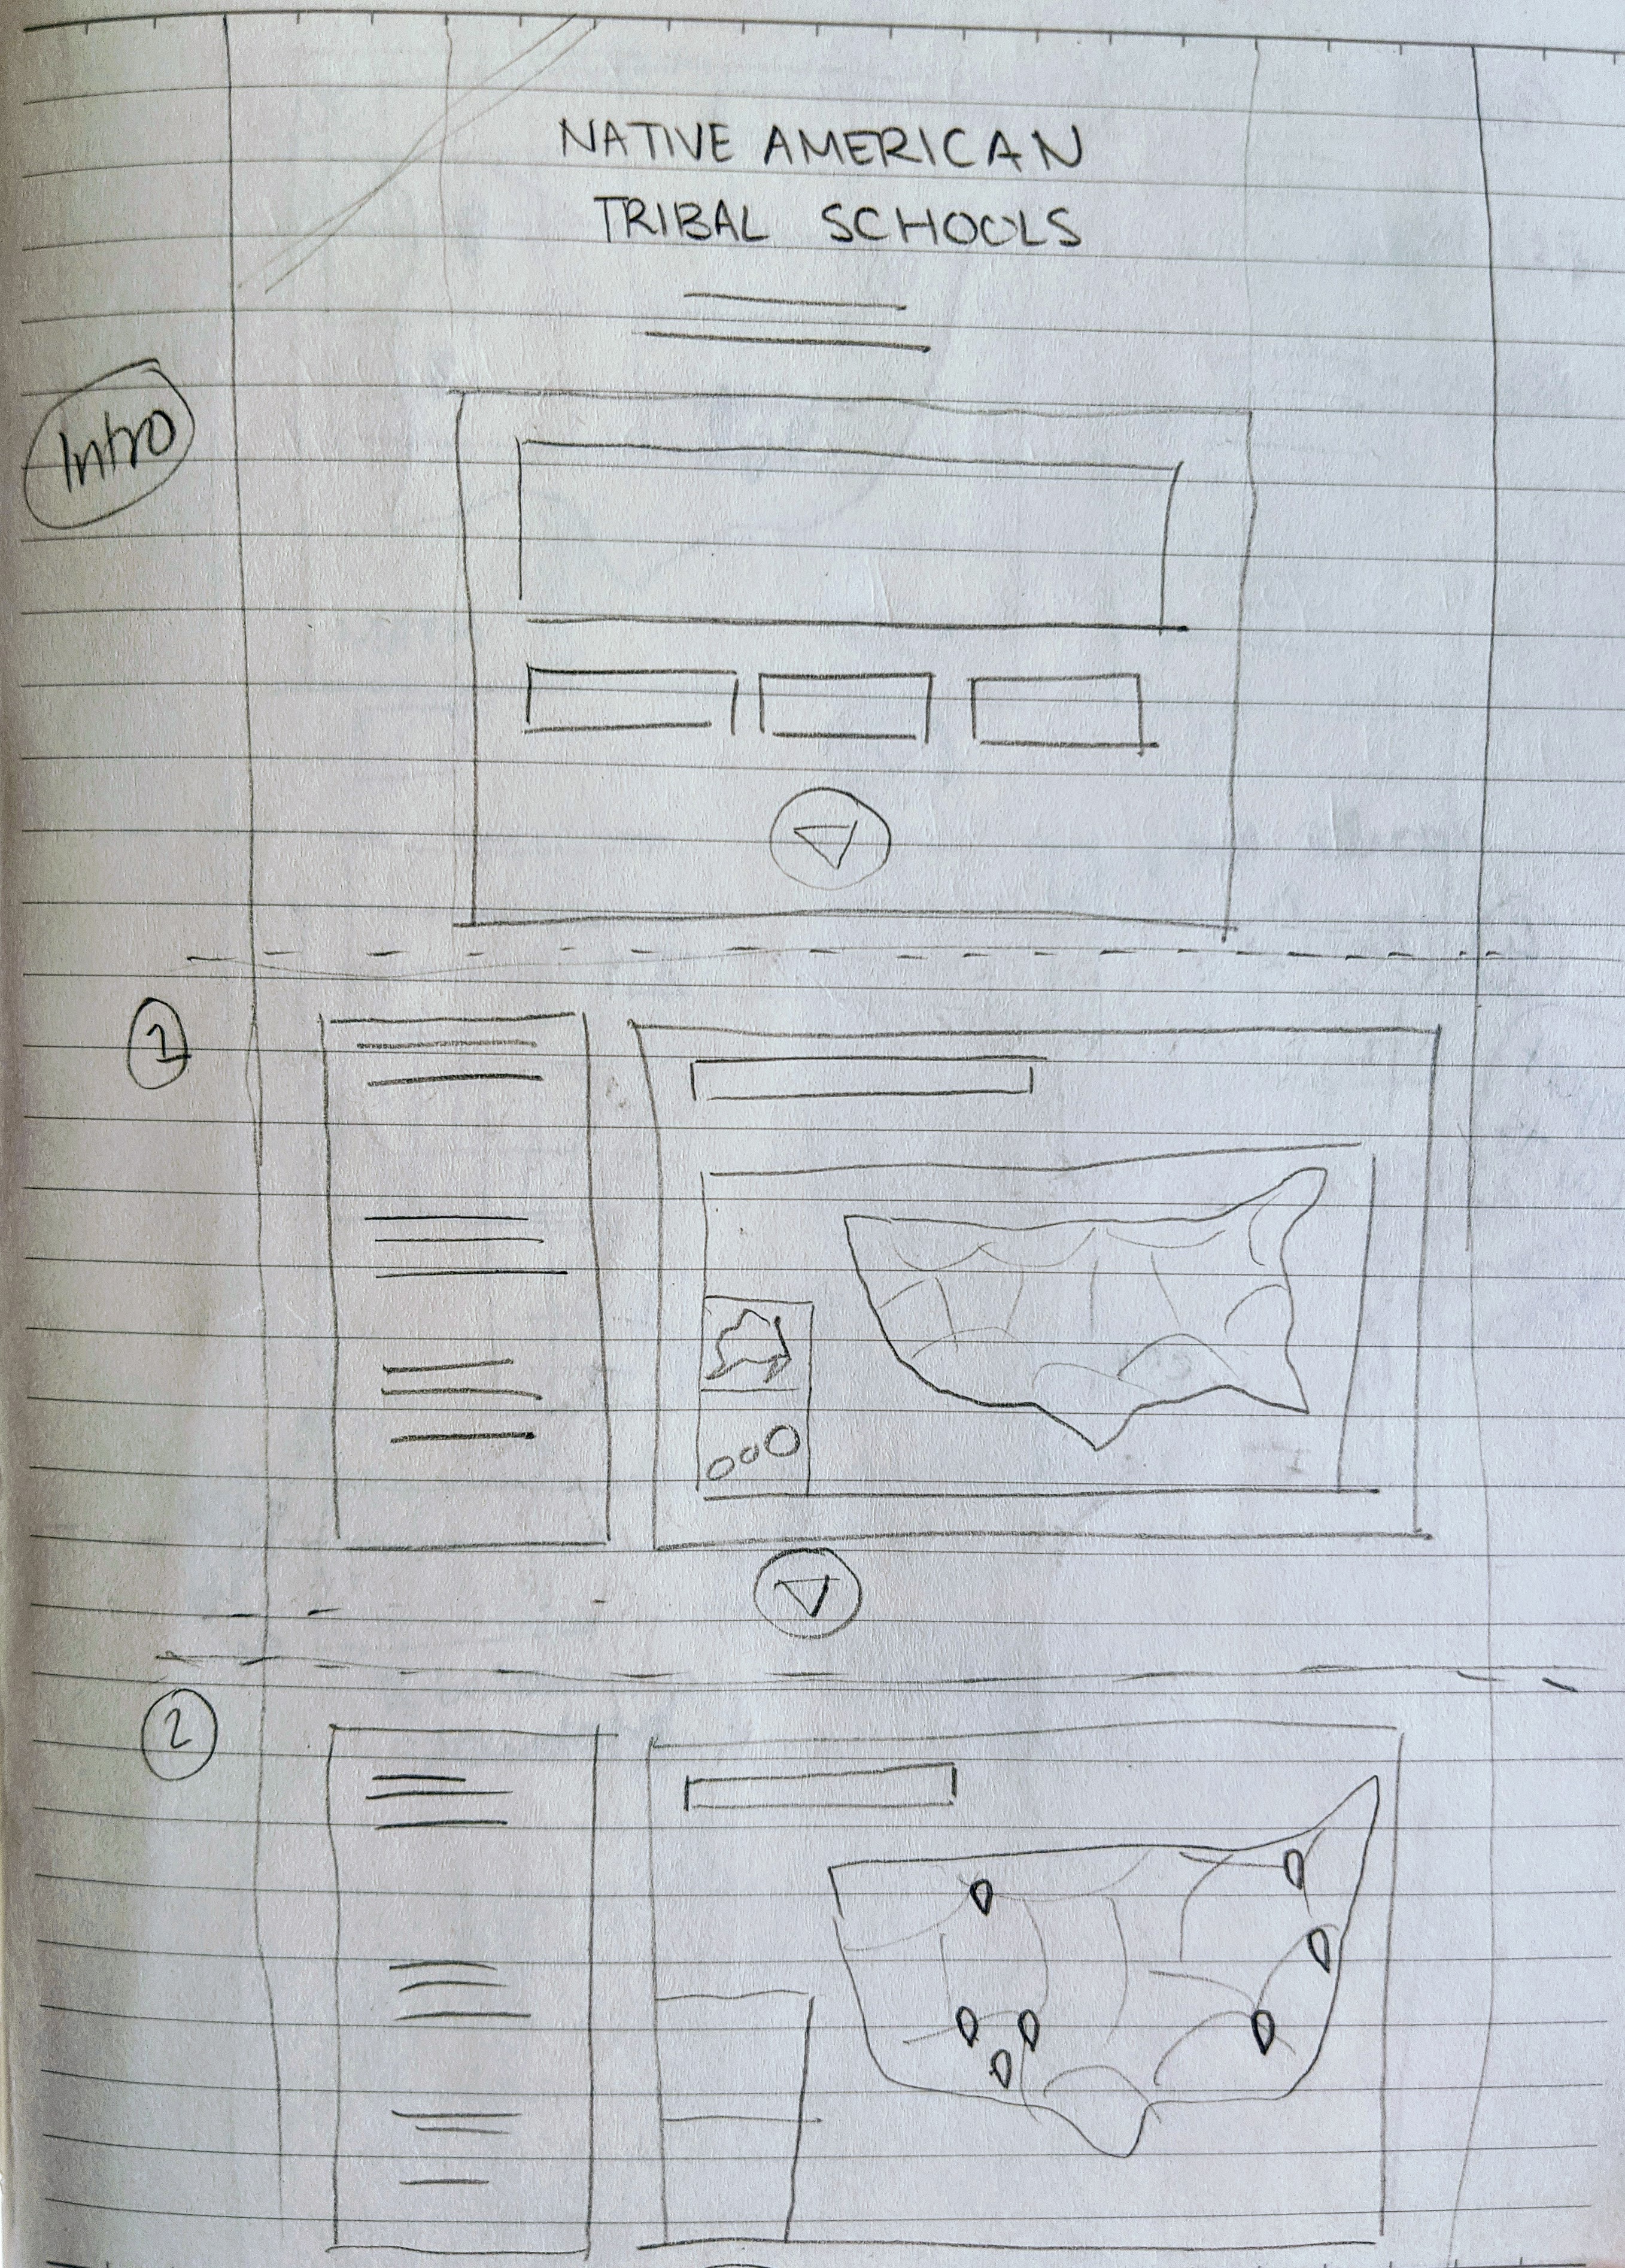 NATIVE AMERICAN
TRIBAL SCHOOLS
Intro
1
2